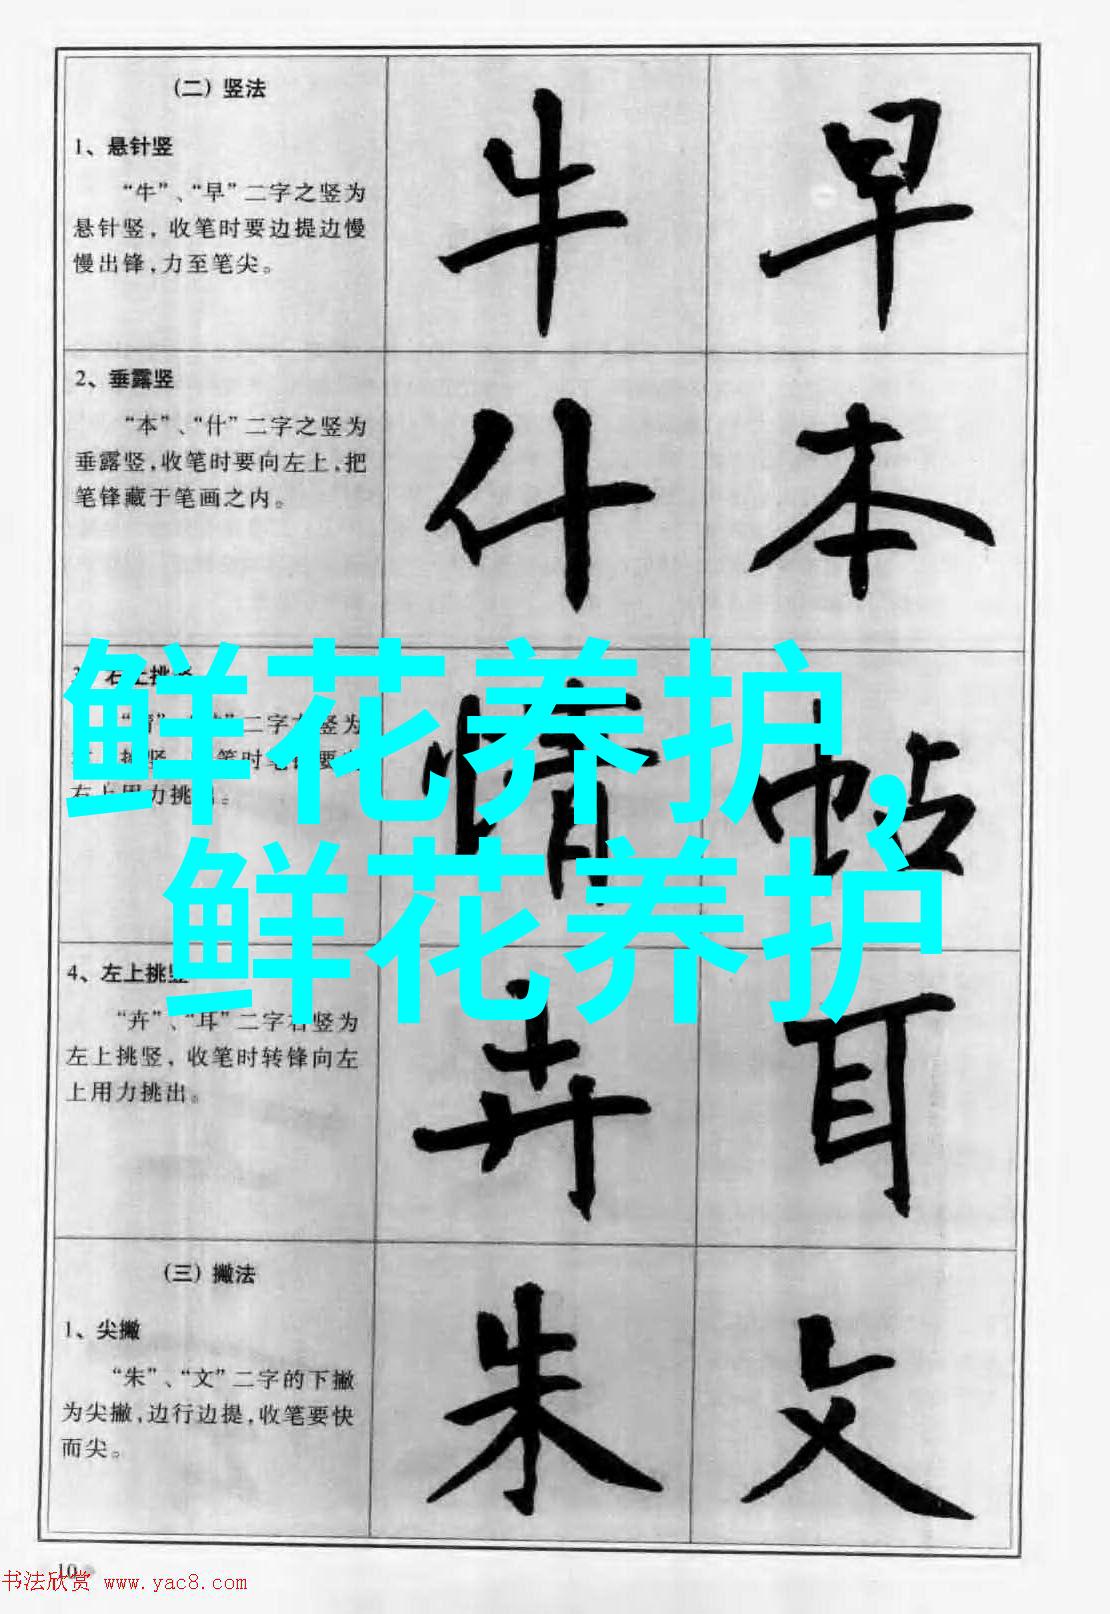 (二) 竖法
牛
早
1、悬针竖
“牛”、“早”二字之竖为
悬针竖，收笔时要边提边慢
慢出锋，力至笔尖。
2、垂露竖
什
本
“本”、“什”二字之竖为
垂露竖，收笔时要向左上，把
笔锋藏于笔画之内。
鲜花养护，
鲜花养护
右上挑竖
二字左竖为
情
帖
4、左上挑竖
“卉”、“耳”二字右竖为
左上挑竖，收笔时转锋向左
上用力挑出。
卉
耳
(三) 撇法
1、尖撇
“朱”、“文”二字的下撇
为尖撇，边行边提，收笔要快
而尖。
朱
文
10
书法欣赏 www.yac8.com